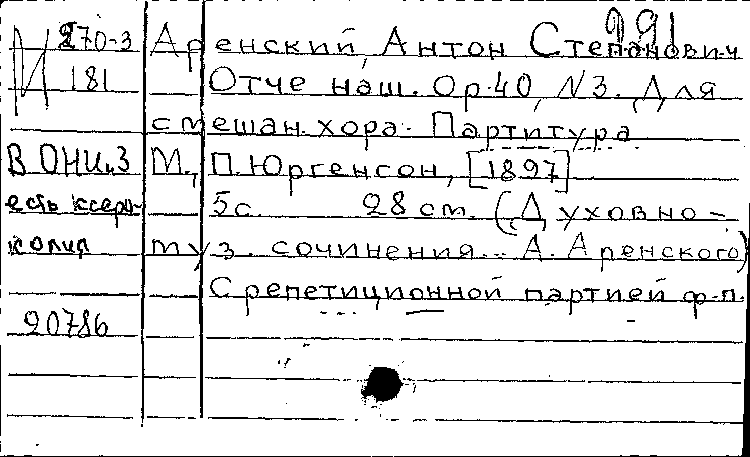 991
И 270-3 Аренский, Антон Степанович
181 Отче наш. Ор.40, N3. Для
смешан. хора. Партитура
В ОНИиЗ М., П. Юргенсон, [1897]
есть ксеро- 5с. 28 см. (Духовно-
копия муз. сочинения... А. Аренского)
С репетиционной партией ф-п.
20786